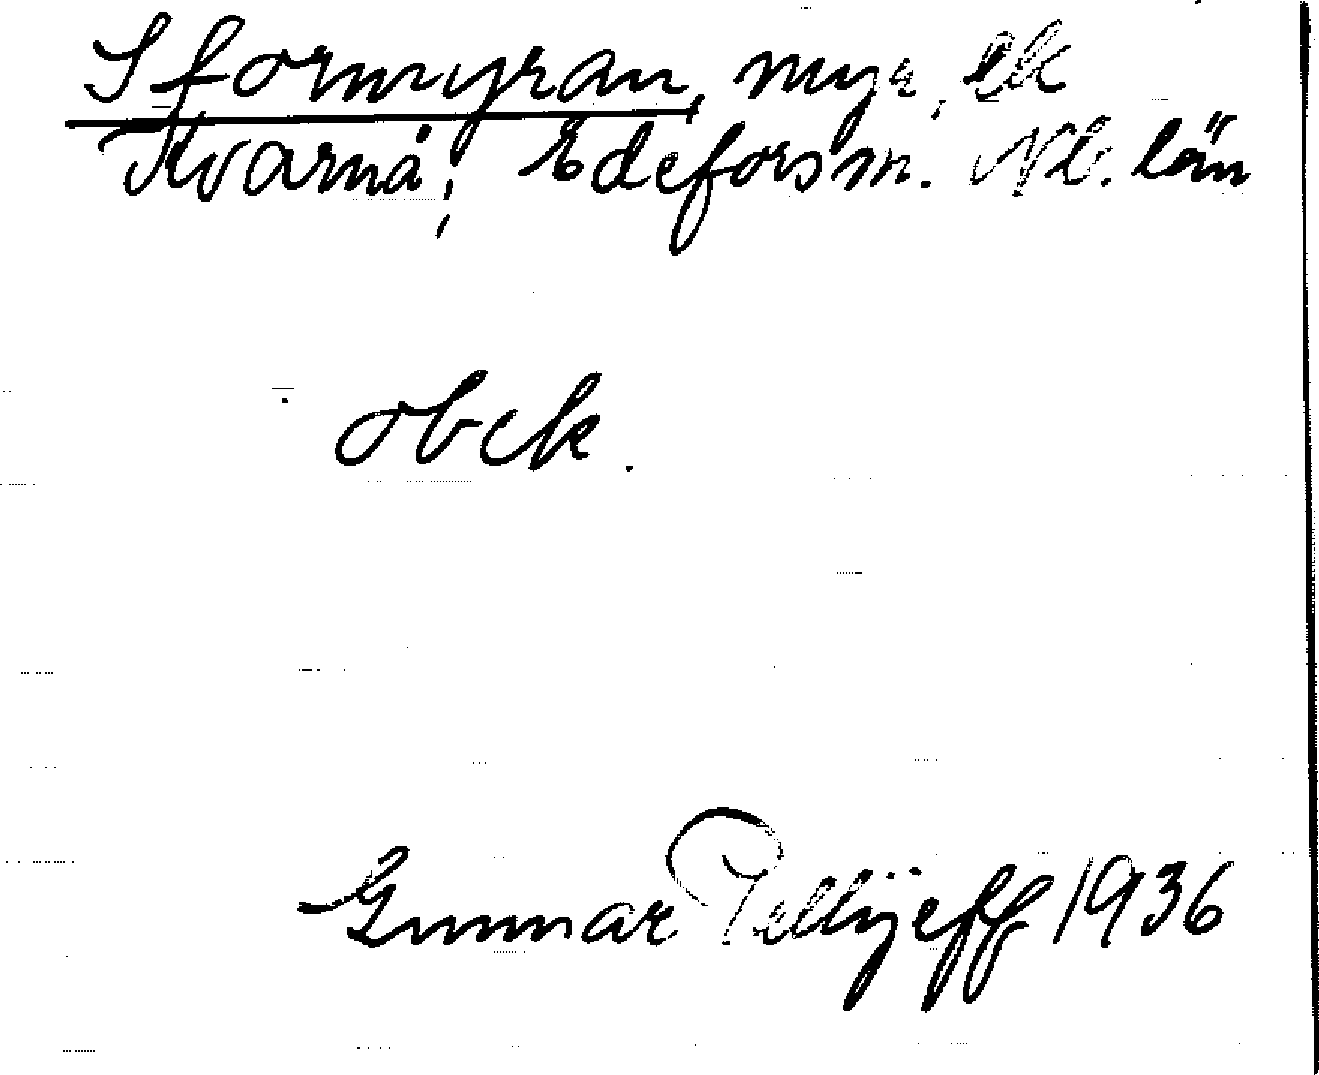 S formyran, myr, ek
Kvarnå, Edefors sn. Nb. län
obek.
Gunnar Pellijeff 1936